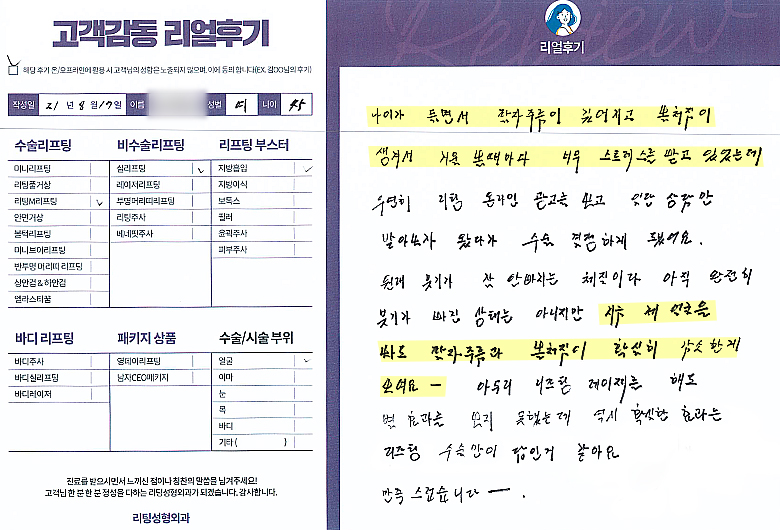 고객감동 리얼후기
해당 후기 온/오프라인에 활용 시 고객님의 성함은 노출되지 않으며, 이에 동의 합니다(EX. 김OO님의 후기)
작성일 21년 8월 17일 이름 성별 여 나이
수술리프팅 비수술리프팅 리프팅 부스터
미니리프팅 실리프팅 지방흡입
리팅풀거상 레이저리프팅 지방이식
리팅M리프팅 투명머리띠리프팅 보톡스
안면거상 리팅주사 필러
볼턱리프팅 베네핏주사 윤곽주사
미니브이리프팅 피부주사
반투명 머리띠 리프팅
상안검 & 하안검
엘라스티꿈
바디 리프팅 패키지 상품 수술/시술 부위
바디주사 영데이리프팅 얼굴
바디실리프팅 남자CEO패키지 이마
바디레이저 눈
목
바디
기타 ( )
진료를 받으시면서 느끼신 점이나 칭찬의 말씀을 남겨주세요!
고객님 한 분 한 분 정성을 다하는 리팅성형외과가 되겠습니다. 감사합니다.
리팅성형외과
Review
리얼후기
나이가 들면서 팔자주름이 깊어지고 볼처짐이
생겨서 거울 볼때마다 너무 스트레스를 받고 있었는데
우연히 리팅 온라인 광고를 보고 상담
받아보자 왔다가 수술 결정하게 됐어요.
원래 붓기가 잘 안빠지는 체질이라 아직 완전히
붓기가 빠진 상태는 아니지만 제 얼굴을
봐도 팔자주름과 볼처짐이 확실히 한게
보여요 ー 아무리 레이저를 해도
별 효과를 보지 못했는데 역시 확실한 효과는
리프팅 수술만이 답인거 같아요
만족 스럽습니다 ー.